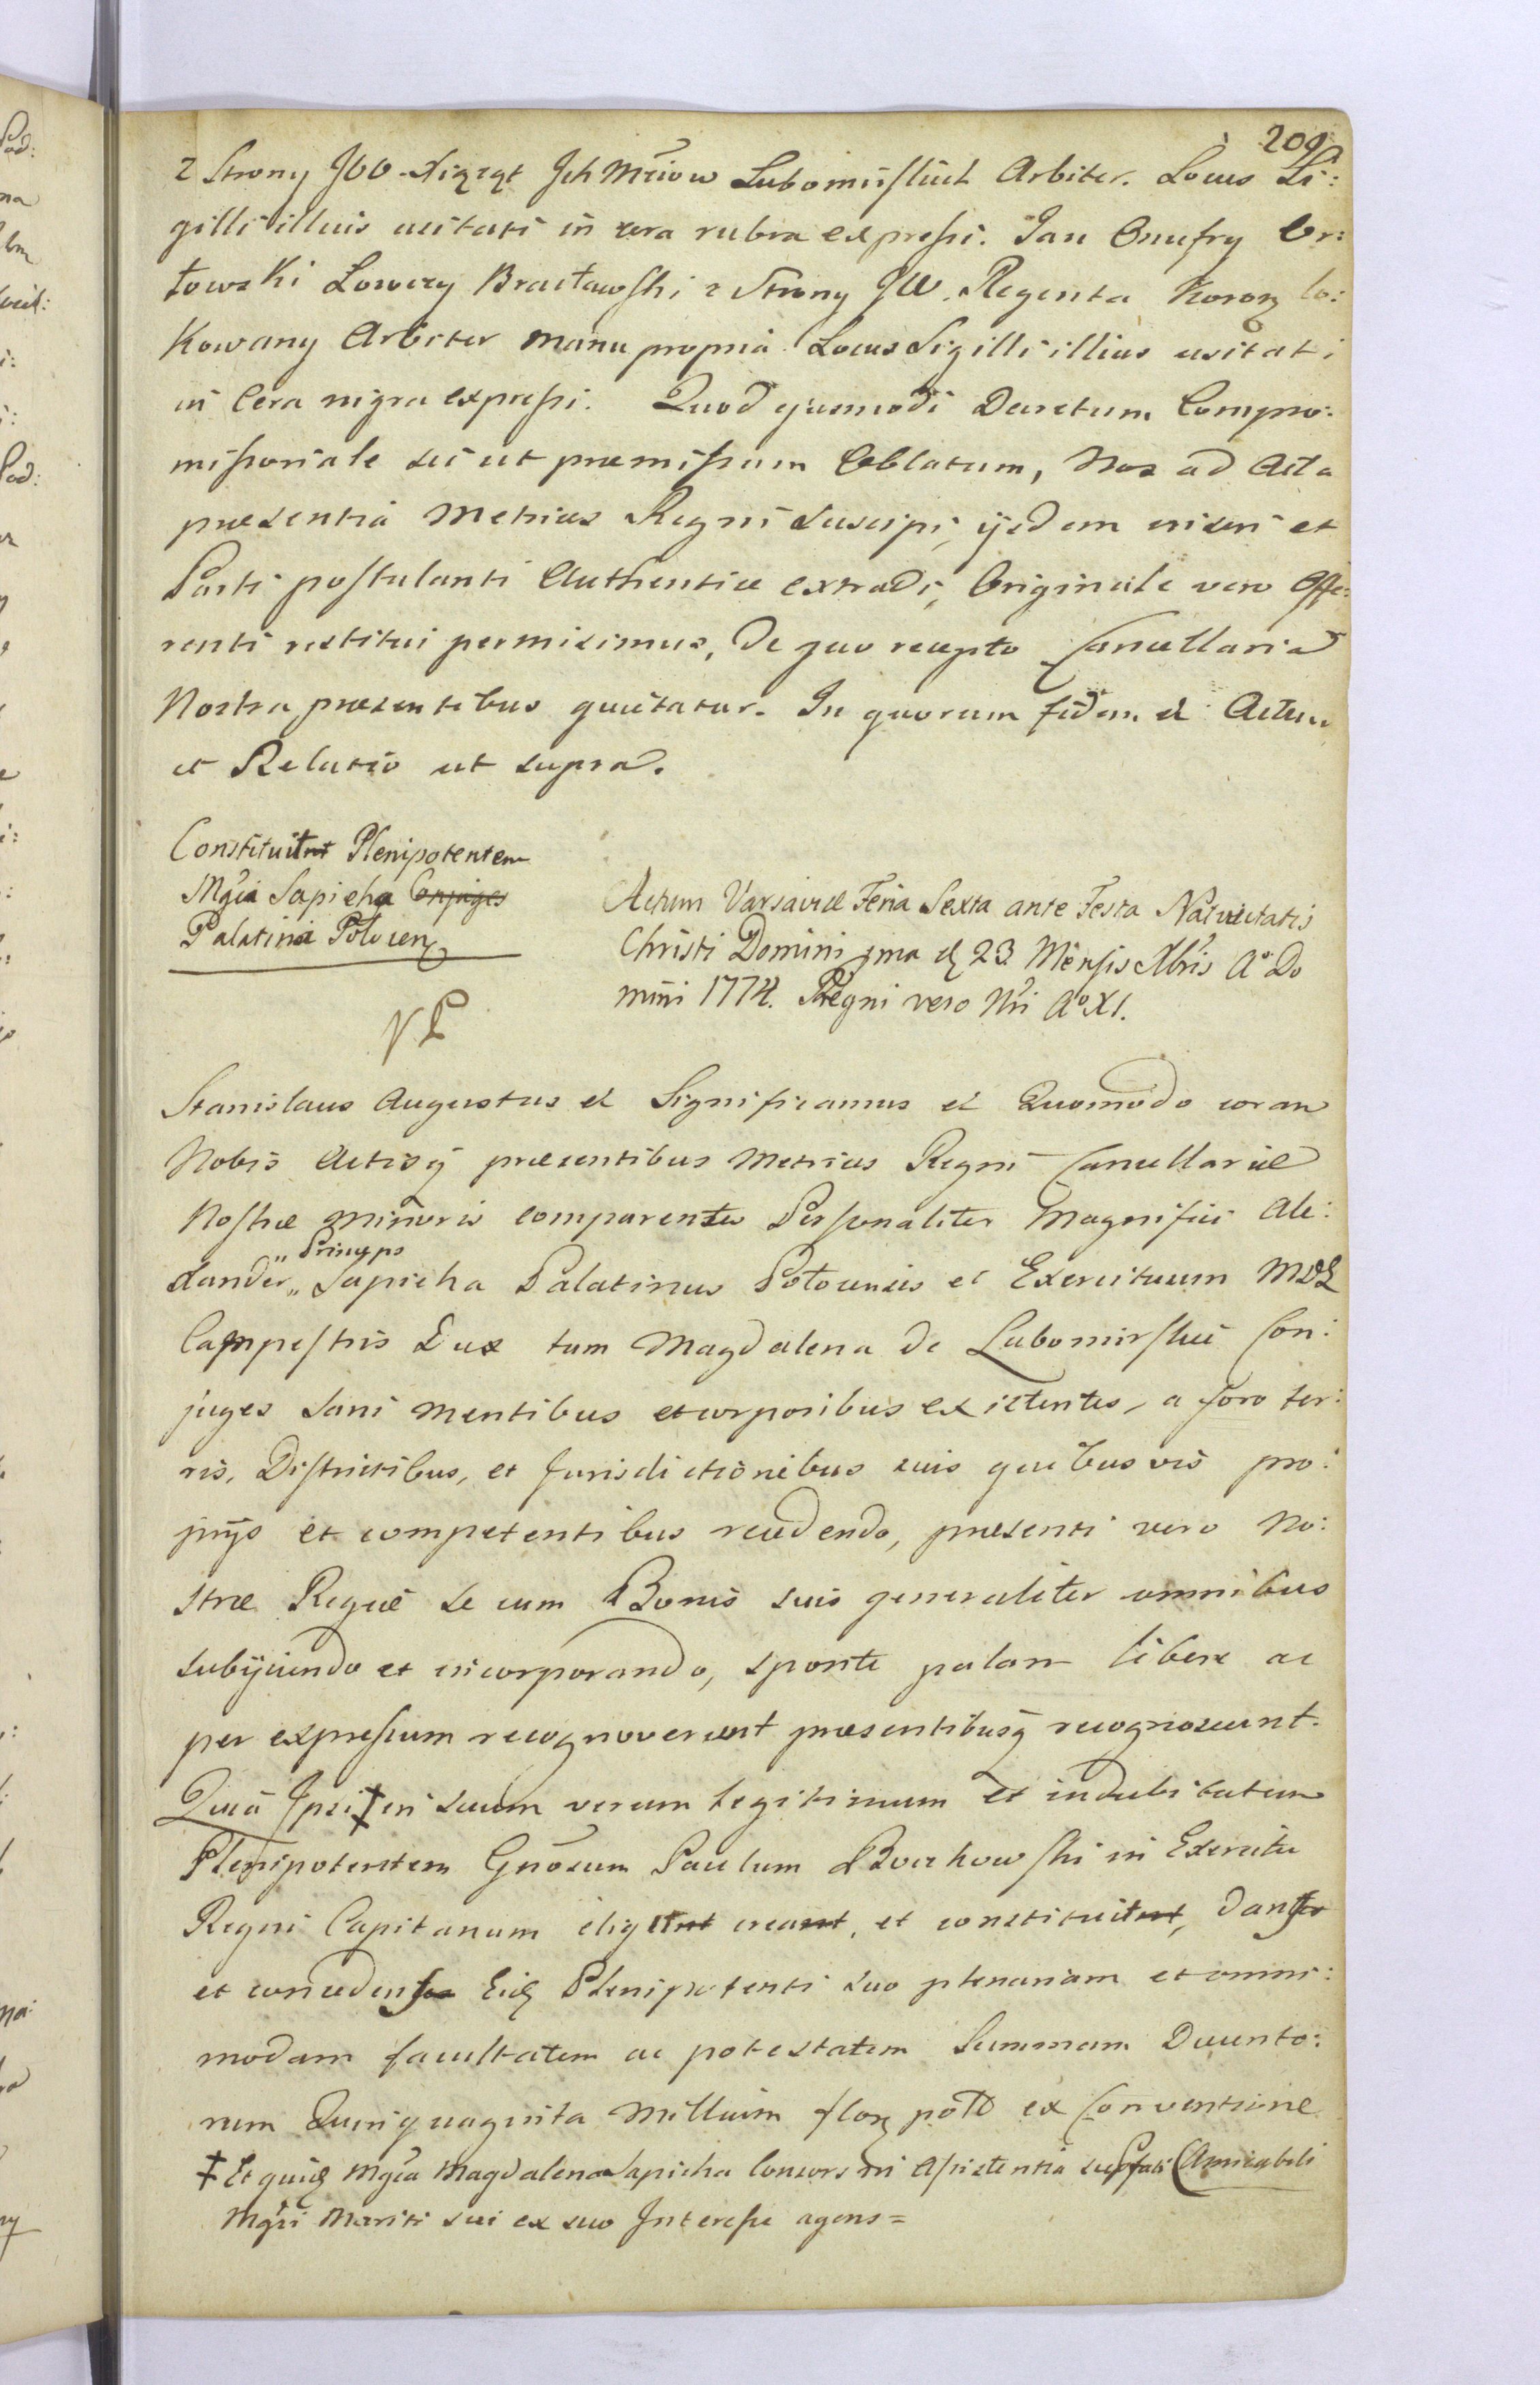 209
z Strony JOO. Xiążąt Jch Mciow Lubomirskich Arbiter. Locus Si:
gilli illius usitati in cera rubra expressi. Jan Onufry Or:
łowski Łowczy Bracławski z Strony JW. Regenta Koron lo:
kowany Arbiter manu propria Locus Sigilli illius usitati
in Cera nigra expressi. Quod ejusmodi Decretum Compro:
missoriale sic ut praemissum Oblatum, Nos ad Acta
praesentia Metrices Regni suscipi, ijsdem inseri et
Parti postulanti Authentice extradi, Originale vero Offe:
renti restitui permisimus, de quo recepto Cancellaria
Nostra praesentibus quietatur. In quorum fidem et Actum
et Relatio ut supra.
Constituit Plenipotentem
Mgca Sapieha Conjuges
Palatina Polocen
Actum Varsaviae Feria Sexta ante Festa Nativitatis
Christi Domini 23 Mensis Xbris A° Do
mini 1774. Regni vero Nri A° XI.
Stanislaus Augustus et Significamus et Quomodo coram
Nobis Actisq praesentibus Metrices Regni Cancellariae
Nostrae Minoris comparentes Personaliter Magnifici Ale:
"Princeps
xander " Sapieha Palatinus Polocensis et Exercituum MDL
Campestris Dux tum Magdalena de Lubomirskie Con:
juges sani mentibus et corporibus existentes, a foro ter:
ris, Districtibus, et Jurisdictionibus suis quibusvis pro:
prijs et competentibus recedendo, praesenti vero No:
strae Regiae se cum Bonis suis generaliter omnibus
subijciendo et incorporando, sponte palam libere ac
per expressum recognoverunt praesentibusq recognoscunt.
Quia Ipsi ‡ in suum verum legitimum et indubitatum
Plenipotentem Gnosum Paulum Borzhowski in Exercitu
Regni Capitanum eligit creat, et constituit, dans
et concedens Eid Plenipotenti suo plenariam et omni:
modam facultatem ac potestatem Summam Ducento:
rum Quinquaginta Millium flor pol ex Conventione
‡ Et quid Mgca Magdalena Sapieha Consors in Assistentia supfati Amicabili
Mgci Mariti sui ex suo Interesse agens =